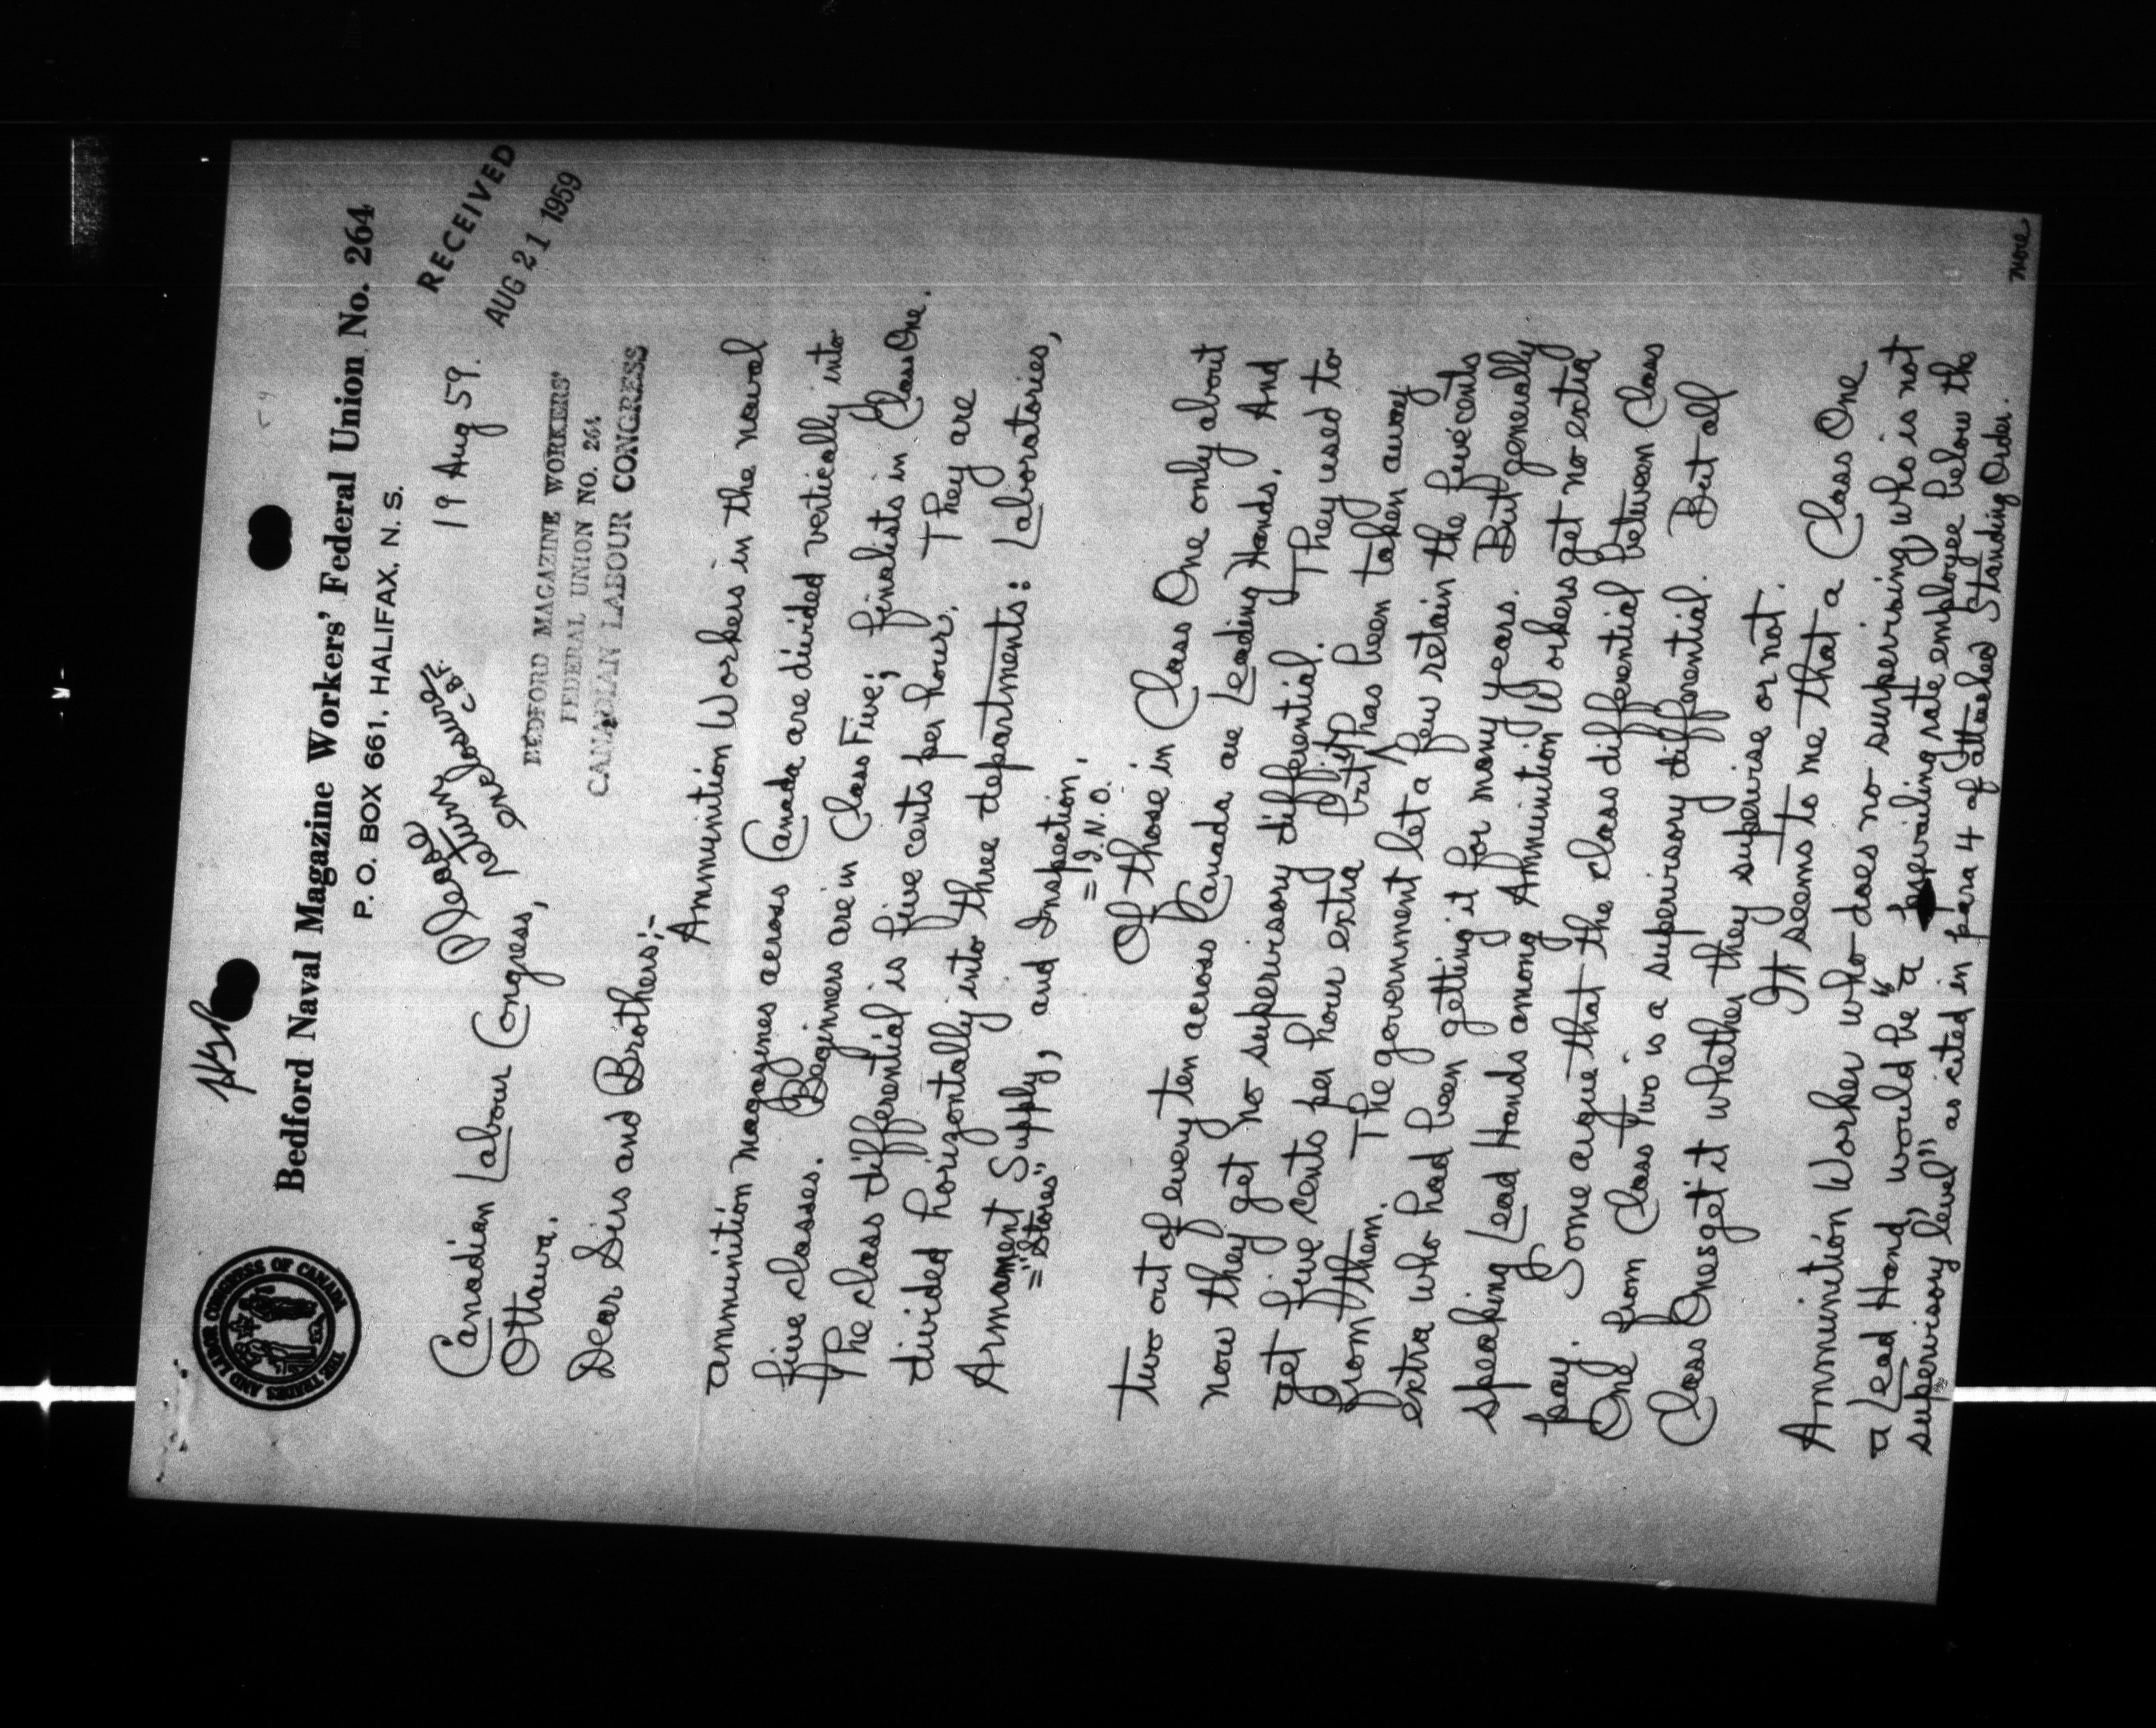 Bedford Naval Magazine Workers' Federal Union No. 264
P. O. BOX 661, HALIFAX, N. S.
THE TRADES AND LABOR CONGRESS OF CANADA
RECEIVED
AUG 21 1959
19 Aug 59.
Please
return
enclosure
C.B.F.
Canadian Labour Congress,
Ottawa.
BEDFORD MAGAZINE WORKERS'
FEDERAL UNION NO. 264
CANADIAN LABOUR CONGRESS
Dear Sirs and Brothers:-
Ammunition Workers in the naval
ammunition magazines across Canada are divided vertically into
five classes. Beginners are in Class Five; finalists in Class One.
The class differential is five cents per hour. They are
divided horizontally into three departments: Laboratories,
Armament Supply, and Inspection.
="Stores" =I.N.O.
Of those in Class One only about
two out of every ten across Canada are Leading Hands. And
now they get no supervisory differential. They used to
get five cents per hour extra but it has been taken away
from them. The government let a few retain the five cents
extra who had been getting it for many years. But generally
speaking Lead Hands among Ammunition Workers get no extra
pay. Some argue that the class differential between Class
One from Class Two is a supervisory differential. But all
Class Ones get it whether they supervise or not.
It seems to me that a Class One
Ammunition Worker who does no supervising, who is not
a Lead Hand, would be a "prevailing rate employee below the
supervisory level" as cited in para 4 of attached Standing Order.
more